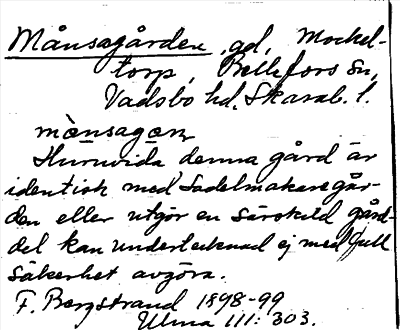 Månsagården, gd, Mockel-
torp, Bellefors sn,
Vadsbo hd. Skarab. l.
mànsagɑn
Huruvida denna gård är
identisk med Sadelmakaregår-
den eller utgör en särskild gård-
del kan undertecknad ej med full
säkerhet avgöra.
F. Bergstrand 1898-99
Ulma 111: 303.